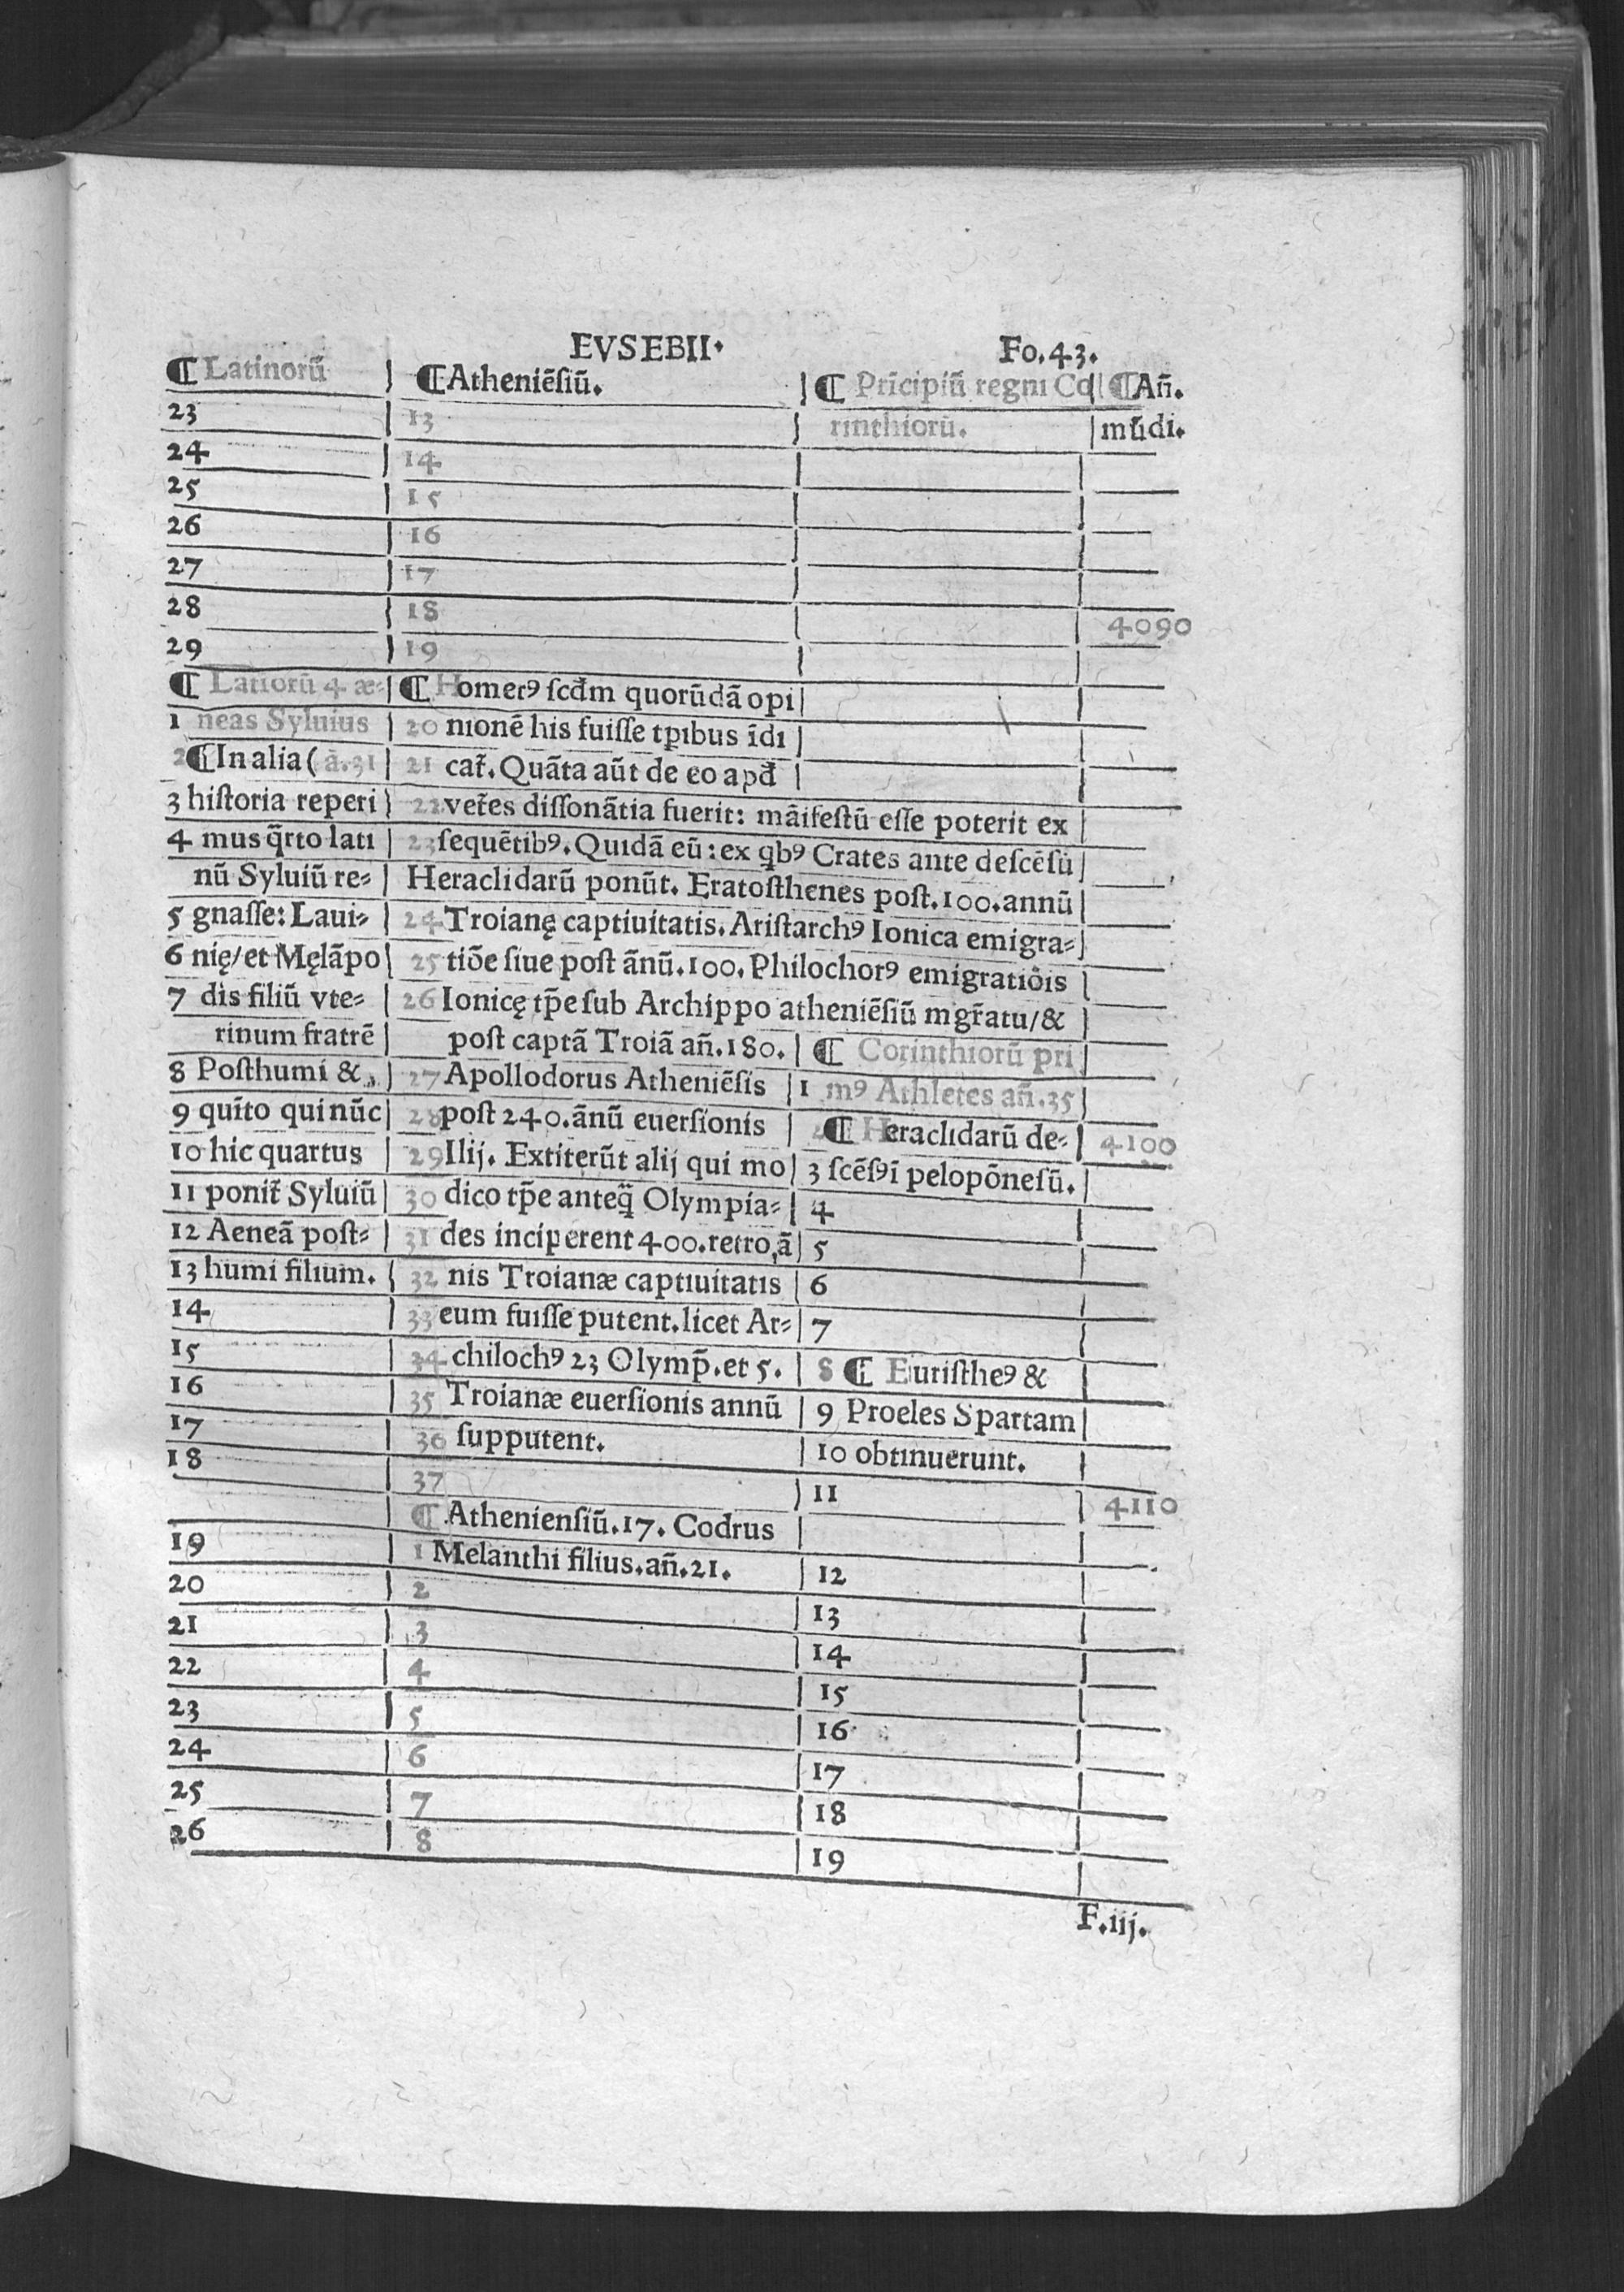 EVSEBII. Fo.43.
¶ Latinorū | ¶ Atheniēsiū. | ¶ Prīcipiū regni Co | ¶ Añ.
23 | 13 | rinthiorū. | mūdi.
24 | 14
25 | 15
26 | 16
27 | 17
28 | 18 | | 4090
29 | 19
¶ Latiorū 4 æ- | ¶ Homerꝰ scđm quorūdā opi
1 neas Syluius | 20 nionē his fuisse tꝑibus īdi
2 ¶ In alia ( ā.31 | 21 cat̃. Quāta aūt de eo apđ
3 historia reperi | 22 vet̃es dissonātia fuerit: māifestū esse poterit ex
4 mus q̃rto lati | 23 sequētibꝰ. Quidā eū: ex qbꝰ Crates ante descēsū
nū Syluiū re- | Heraclidarū ponūt. Eratosthenes post.100.annū
5 gnasse: Laui- | 24 Troianę captiuitatis. Aristarchꝰ Ionica emigra-
6 nię/et Męlāpo | 25 tiōe siue post ānū.100. Philochorꝰ emigratiōis
7 dis filiū vte- | 26 Ionicę tp̄e sub Archippo atheniēsiū mgr̃atu/&
rinum fratrē | post captā Troiā añ.180. | ¶ Corinthiorū pri
8 Posthumi & | 27 Apollodorus Atheniēsis | 1 mꝰ Athletes añ.35
9 quīto qui nūc | 28 post 240.ānū euersionis | 2 ¶ Heraclidarū de- | 4100
10 hic quartus | 29 Ilij. Extiterūt alij qui mo | 3 scēsꝰ ī pelopōnesū.
11 ponit̃ Syluiū | 30 dico tp̄e anteq̃ Olympia- | 4
12 Aeneā post- | 31 des inciperent 400.retro,ā | 5
13 humi filium. | 32 nis Troianæ captiuitatis | 6
14 | 33 eum fuisse putent.licet Ar- | 7
15 | 34 chilochꝰ 23 Olymp̄.et 5. | 8 ¶ Euristheꝰ &
16 | 35 Troianæ euersionis annū | 9 Proeles Spartam
17 | 36 supputent. | 10 obtinuerunt.
18 | 37 | 11 | 4110
¶ Atheniensiū.17. Codrus
19 | 1 Melanthi filius.añ.21. | 12
20 | 2 | 13
21 | 3 | 14
22 | 4 | 15
23 | 5 | 16
24 | 6 | 17
25 | 7 | 18
26 | 8 | 19
F.iij.